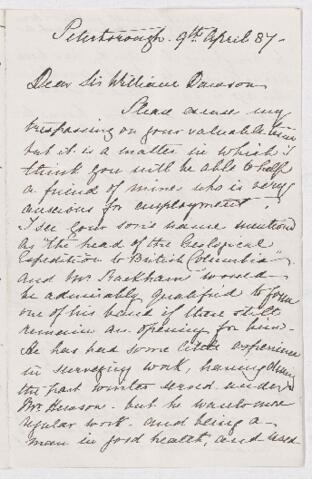 Peterborough. 9th April 87-
Dear Sir William Dawson
Please excuse my
trespassing on your valuable time
but it is a matter in which I
think you will be able to help
a friend of mine who is very
anxious for employment
I see your son's name mentioned
as "the head of the Geological
Expedition to British Columbia"
and Mr. Rackham would
be admirably qualified to form
one of his band if there still
remains an opening for him.
He has had some little experience
in surveying work, having during
the past winter served under
Mr. but he wants more
regular work. and being a
man in good health, and used